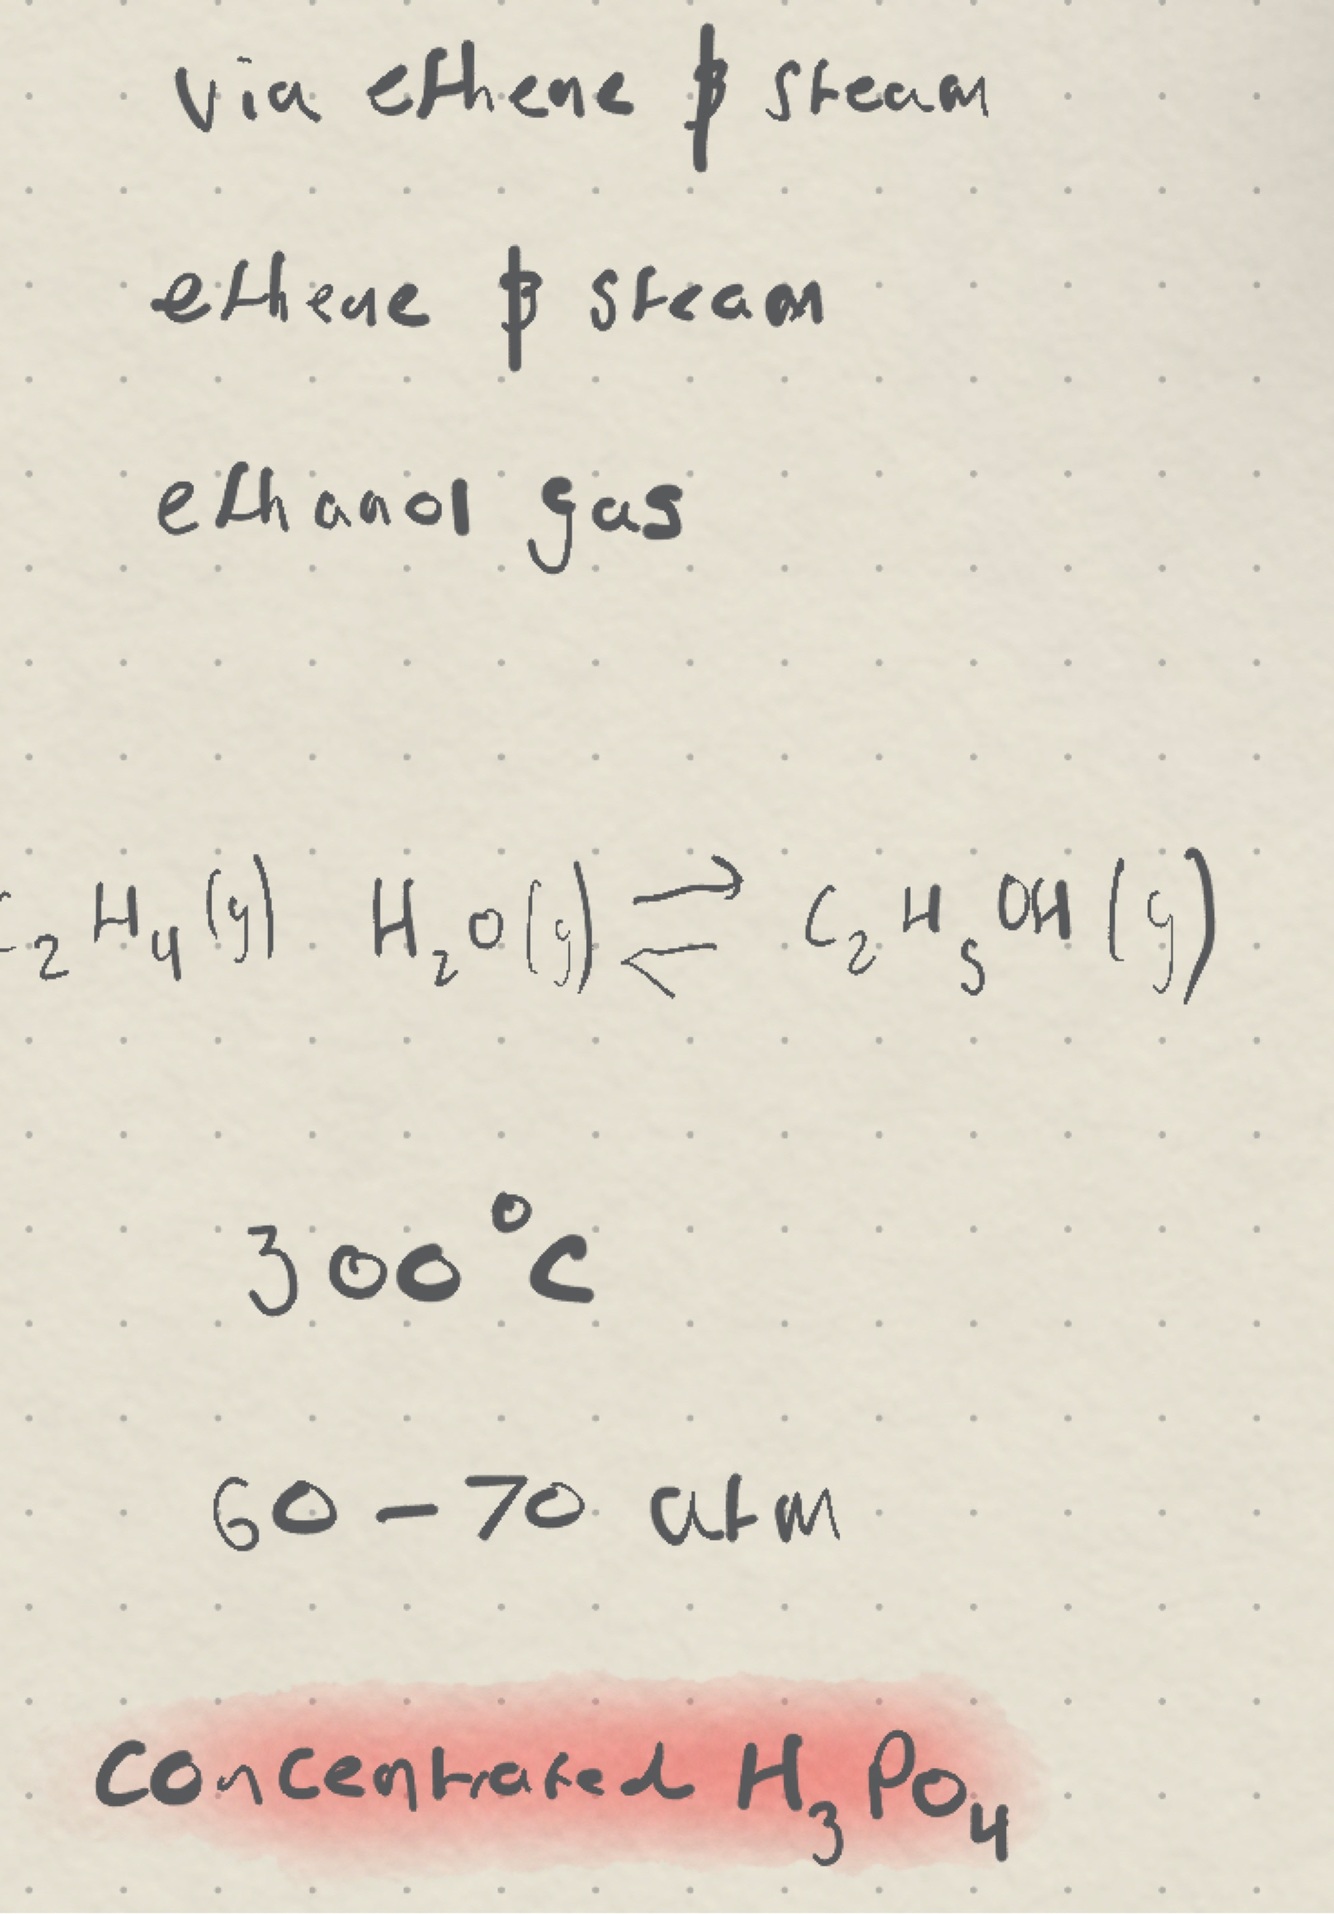 via ethene & steam
ethene & steam
ethanol gas
C₂H₄(g) H₂O(g) ⇌ C₂H₅OH(g)
300°C
60 – 70 atm
Concentrated H₃PO₄